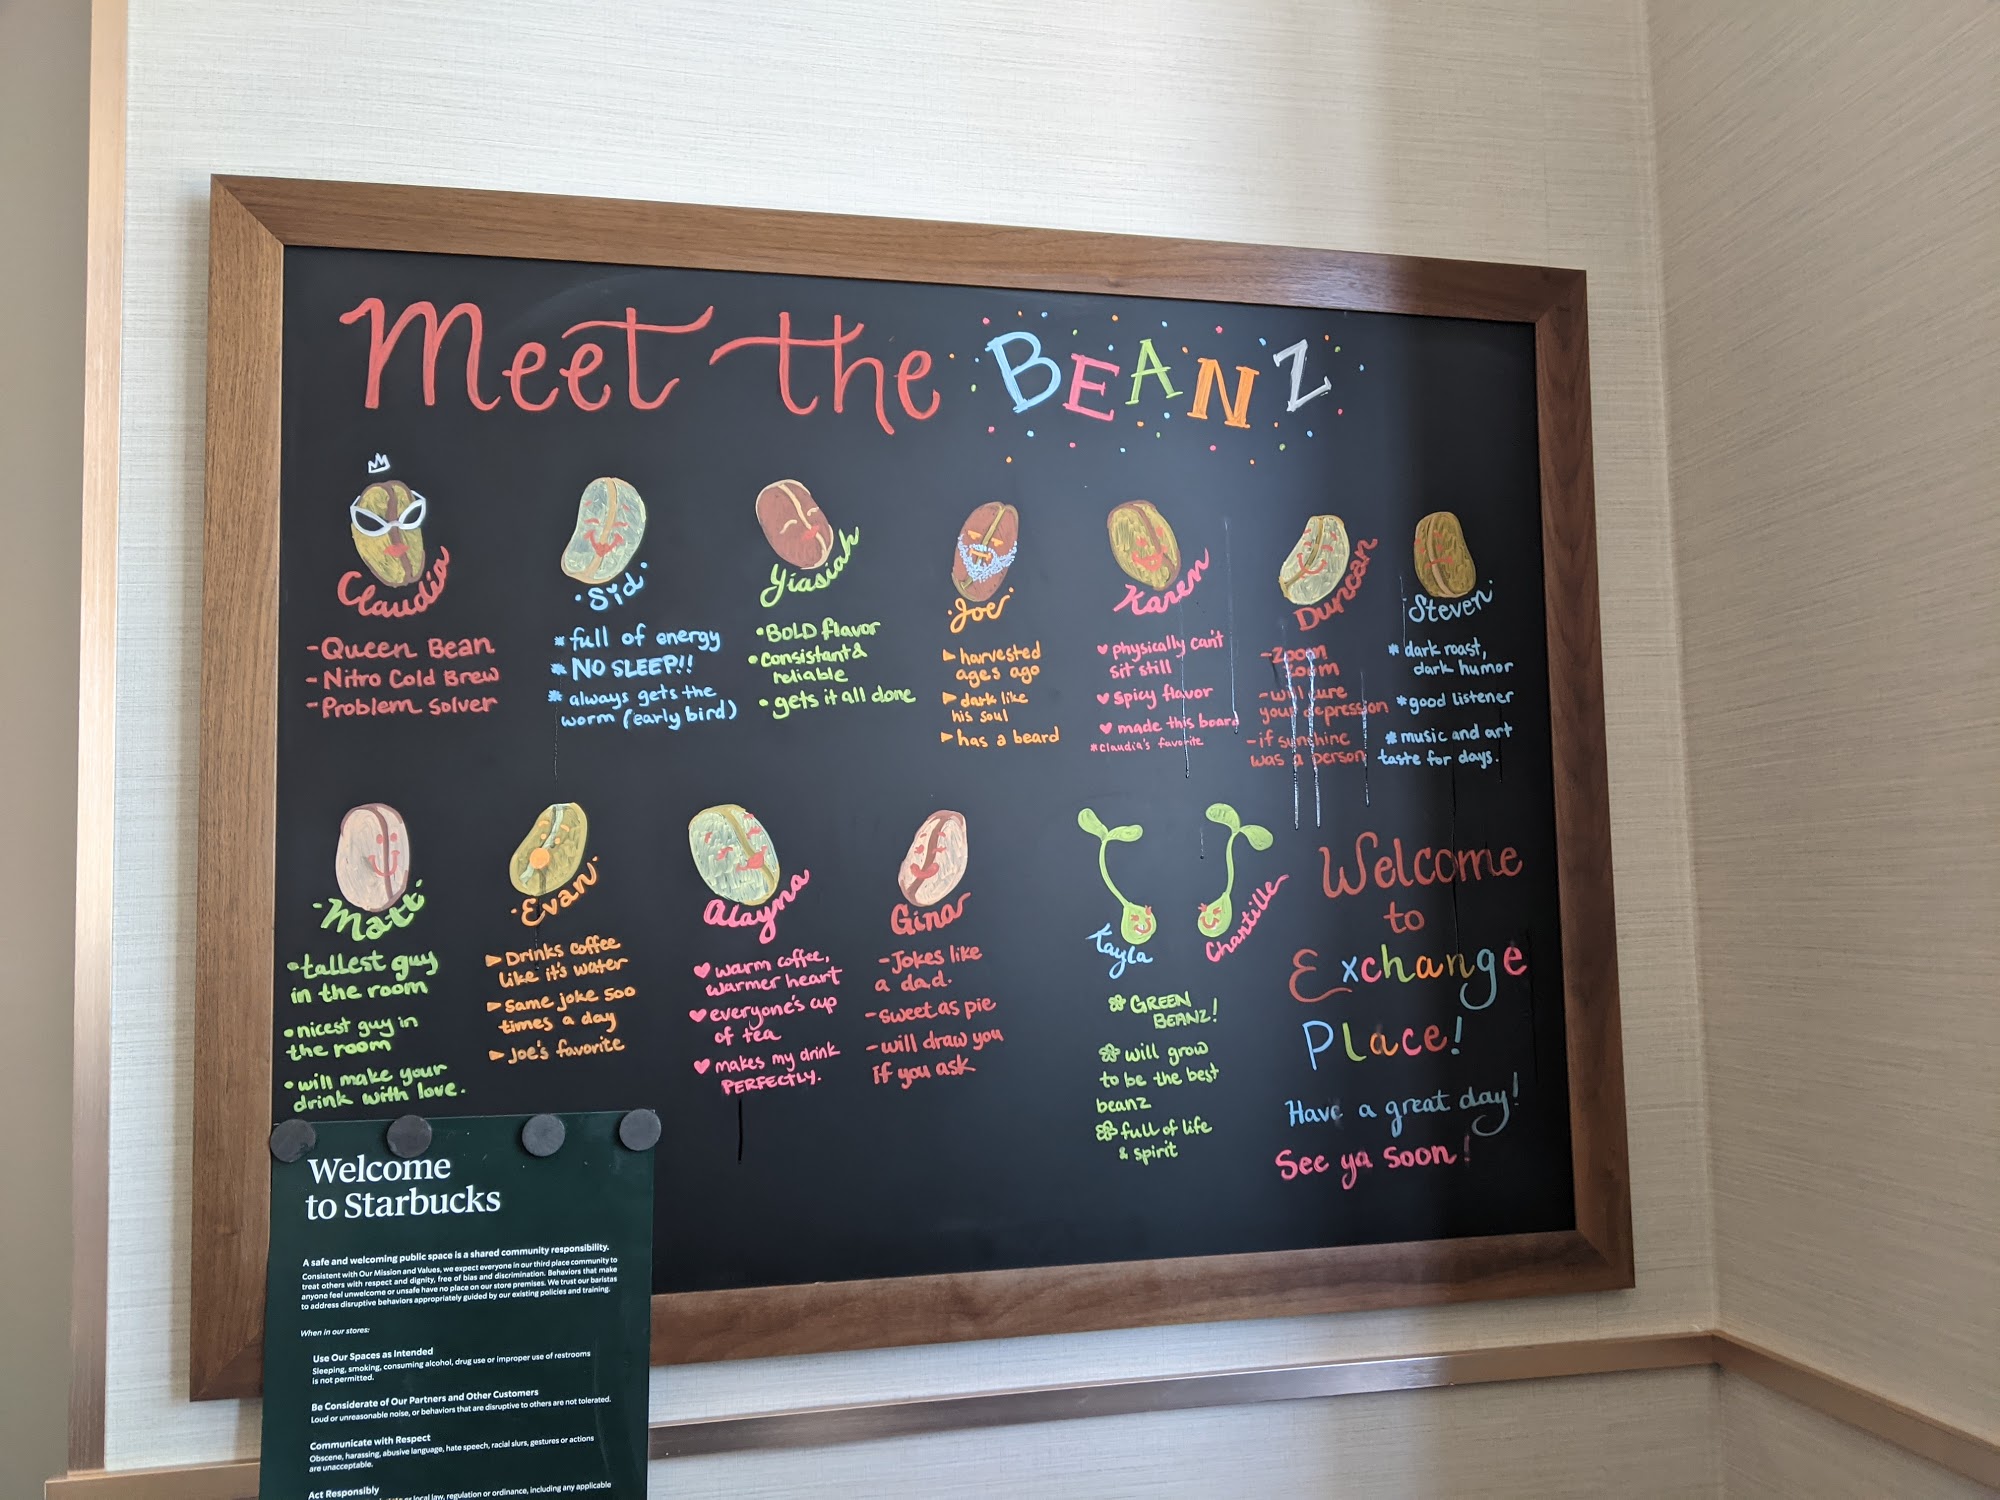 Meet the BEANZ
Claudia
- Queen Bean
- Nitro Cold Brew
- Problem Solver
·Sid·
* full of energy
* NO SLEEP!!
* always gets the
worm (early bird)
Yiasiah
• BOLD flavor
• consistant &
reliable
• gets it all done
·Joe·
▸ harvested
ages ago
▸ dark like
his soul
▸ has a beard
Karem
♥ physically can't
sit still
♥ spicy flavor
♥ made this board
*Claudia's favorite
Duncan
- Zoom
Zoom
- will cure
your depression
- if sunshine
was a person
Steven
* dark roast,
dark humor
* good listener
* music and art
taste for days.
·Matt·
• tallest guy
in the room
• nicest guy in
the room
• will make your
drink with love.
·Evan·
▸ Drinks coffee
like it's water
▸ Same joke 500
times a day
▸ Joe's favorite
Alayna
♥ warm coffee,
warmer heart
♥ everyone's cup
of tea
♥ makes my drink
PERFECTLY.
Gina
- Jokes like
a dad.
- sweet as pie
- will draw you
if you ask
Kayla
Chantille
GREEN
BEANZ!
will grow
to be the best
beanz
full of life
& spirit
Welcome
to
Exchange
Place!
Have a great day!
See ya soon!
Welcome
to Starbucks
A safe and welcoming public space is a shared community responsibility.
Consistent with Our Mission and Values, we expect everyone in our third place community to
treat others with respect and dignity, free of bias and discrimination. Behaviors that make
anyone feel unwelcome or unsafe have no place on our store premises. We trust our baristas
to address disruptive behaviors appropriately guided by our existing policies and training.
When in our stores:
Use Our Spaces as Intended
Sleeping, smoking, consuming alcohol, drug use or improper use of restrooms
is not permitted.
Be Considerate of Our Partners and Other Customers
Loud or unreasonable noise, or behaviors that are disruptive to others are not tolerated.
Communicate with Respect
Obscene, harassing, abusive language, hate speech, racial slurs, gestures or actions
are unacceptable.
Act Responsibly
or local law, regulation or ordinance, including any applicable